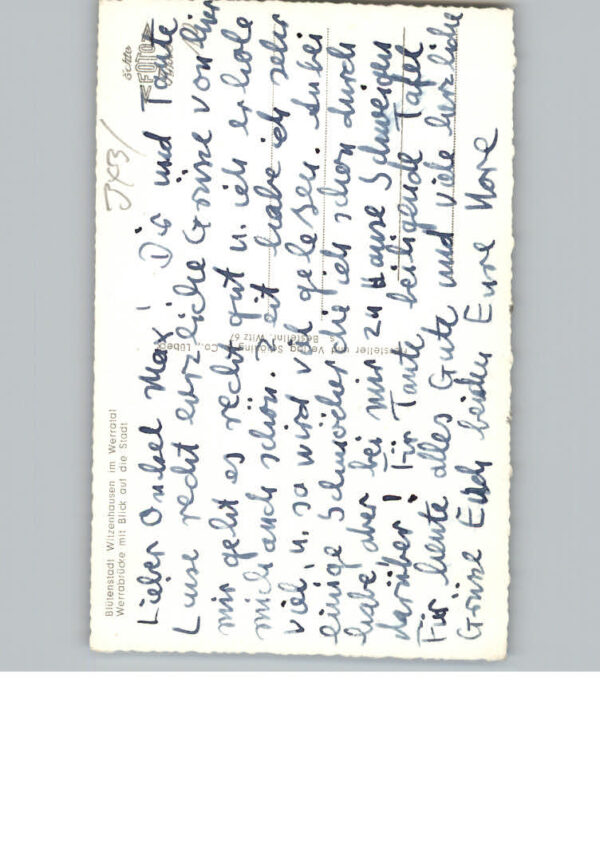 Blütenstadt Witzenhausen im Werratal
Werrabrücke mit Blick auf die Stadt
echte
FOTO
JXB/
Hersteller und Verlag Schöning & Co., Lübeck
Bestellnr. Witz 67
Lieber Onkel Max! Dir und Tante
Luise recht herzliche Grüsse von hier
mir geht es recht gut u. ich erhole
mich auch schön. Zeit habe ich sehr
viel, u. so wird viel gelesen. Dabei
einige Schmöcker die ich schon durch
habe aber bei mir zu Hause Schweigen
darüber! Für Tante beiligende Tafel
Für heute alles Gute und viele herzliche
Grüsse Euch beiden Eure